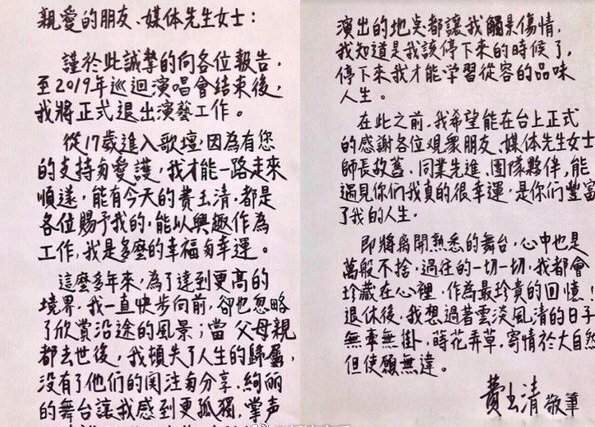 親愛的朋友、媒体先生女士：
謹於此誠摯的向各位報告，
至2019年巡迴演唱會結束後，
我將正式退出演藝工作。
從17歲進入歌壇，因為有您
的支持与愛護，我才能一路走來
順遂，能有今天的費玉清，都是
各位賜予我的，能以興趣作為
工作，我是多麼的幸福与幸運。
這麼多年來，為了達到更高的
境界，我一直快步向前，卻也忽略
了欣賞沿途的風景；當父母親
都去世後，我頓失了人生的歸屬，
沒有了他們的関注与分享，絢麗
的舞台讓我感到更孤獨，掌声
演出的地点都讓我觸景傷情，
我知道是我該停下來的時候了，
停下來我才能学習從容的品味
人生。
在此之前，我希望能在台上正式
的感謝各位觀衆朋友、媒体先生女士
師長故舊、同業先進、團隊夥伴，能
遇見你们我真的很幸運，是你们豐富
了我的人生。
即將離開熟悉的舞台，心中也是
萬般不捨，過往的一切一切，我都會
珍藏在心裡，作為最珍貴的回憶！
退休後，我想過著雲淡風清的日子
無牽無掛，蒔花弄草，寄情於大自然
但使願無違。
費玉清 敬筆